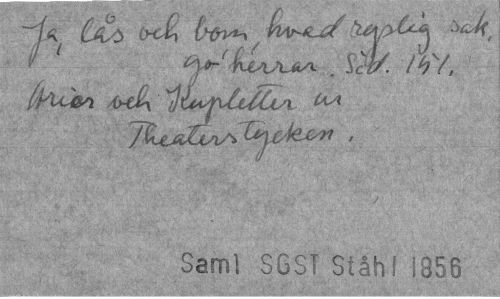 Ja, lås och bom hvad ryslig sak,
go' herrar. Sid. 151.
Arior och Kupletter ur
Theaterstycken.
Saml SGST Ståhl 1856